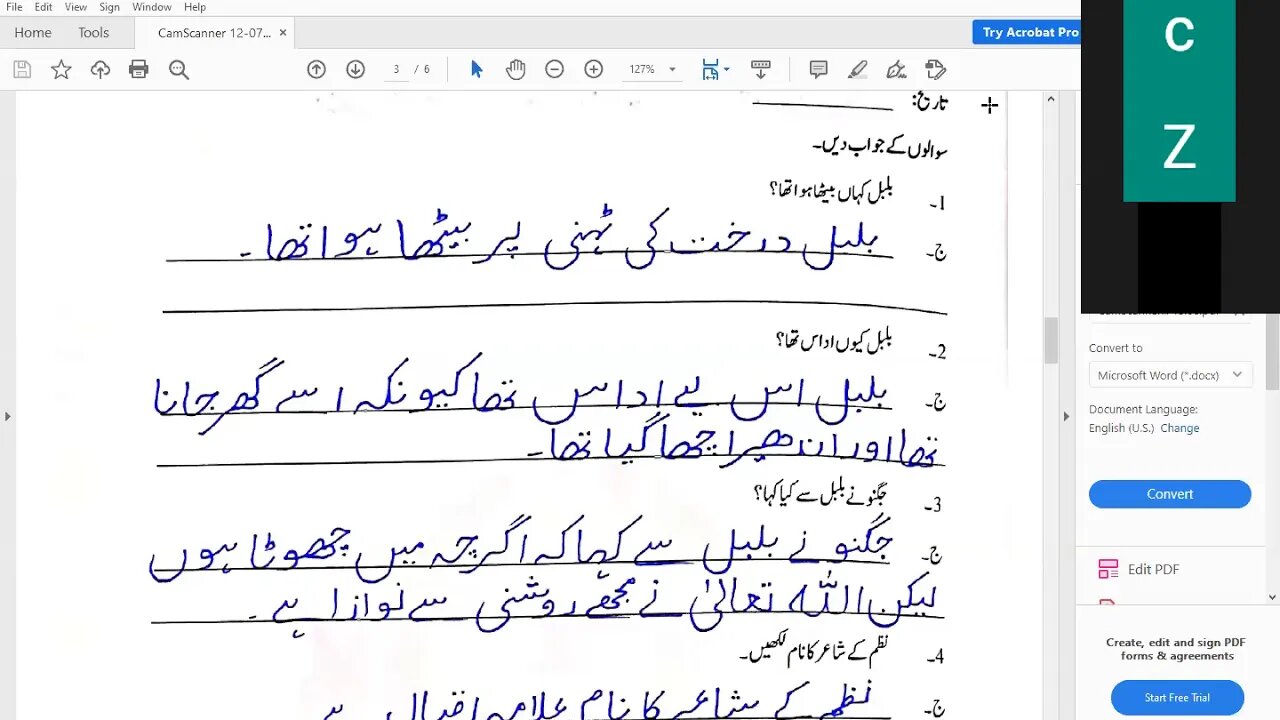 File Edit View Sign Window Help
Home Tools CamScanner 12-07... ×
Try Acrobat Pro
3 / 6
127%
C
Z
تاریخ:
سوالوں کے جواب دیں۔
1۔ بلبل کہاں بیٹھا ہوا تھا؟
ج۔ بلبل درخت کی ٹہنی پر بیٹھا ہوا تھا۔
2۔ بلبل کیوں اداس تھا؟
ج۔ بلبل اس لیے اداس تھا کیونکہ اسے گھر جانا
تھا اور اندھیرا چھا گیا تھا۔
3۔ جگنو نے بلبل سے کیا کہا؟
ج۔ جگنو نے بلبل سے کہا کہ اگرچہ میں چھوٹا ہوں
لیکن اللہ تعالیٰ نے مجھے روشنی سے نوازا ہے۔
4۔ نظم کے شاعر کا نام لکھیں۔
ج۔ نظم کے شاعر کا نام علامہ اقبال ہے
Convert to
Microsoft Word (*.docx)
Document Language:
English (U.S.) Change
Convert
Edit PDF
Create, edit and sign PDF
forms & agreements
Start Free Trial